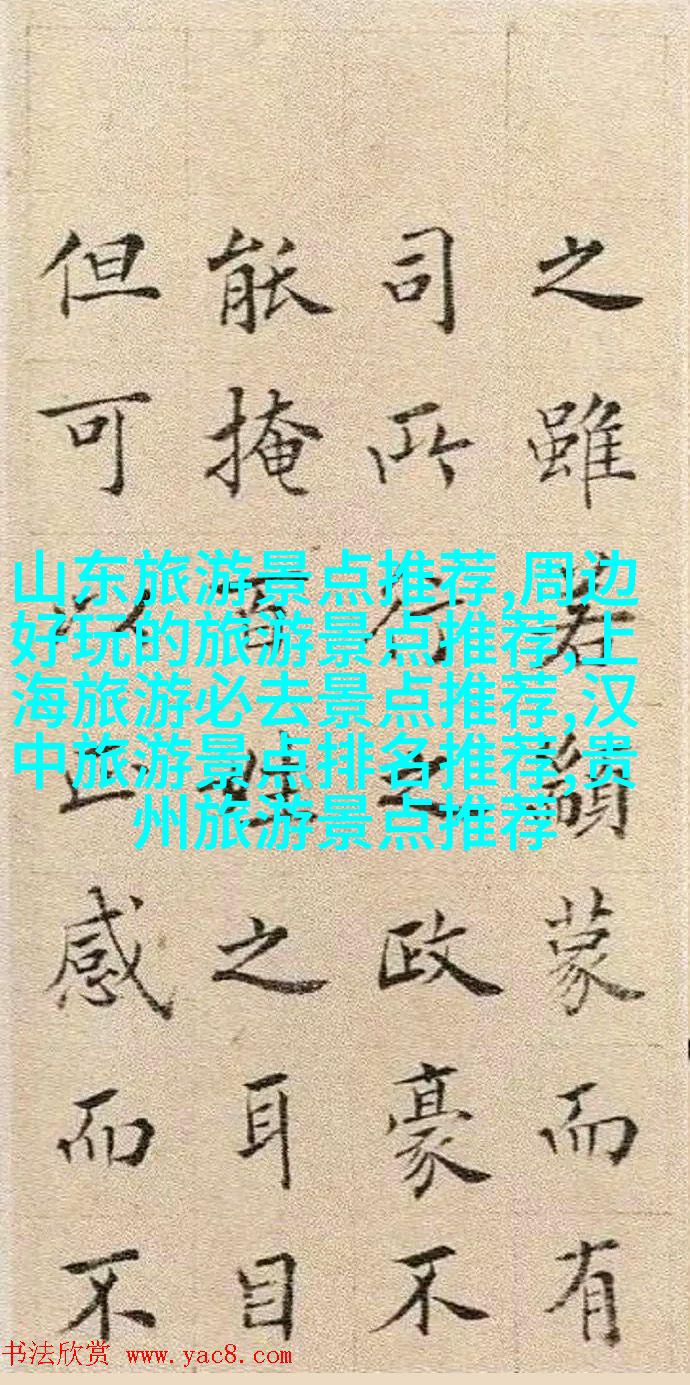 之雖若蒙而有
司所行之政豪不
能掩百姓之耳目
但可以感而不
山东旅游景点推荐,周边
好玩的旅游景点推荐,上
海旅游必去景点推荐,汉
中旅游景点排名推荐,贵
州旅游景点推荐
书法欣赏 www.yac8.com